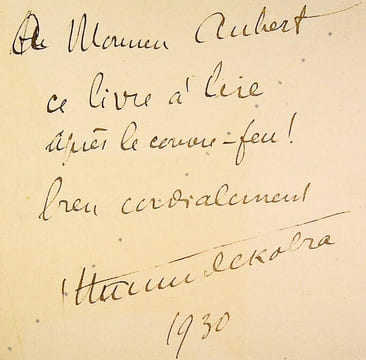 A Monsieur Aubert
ce livre à lire
après le couvre-feu!
bien cordialement
1930